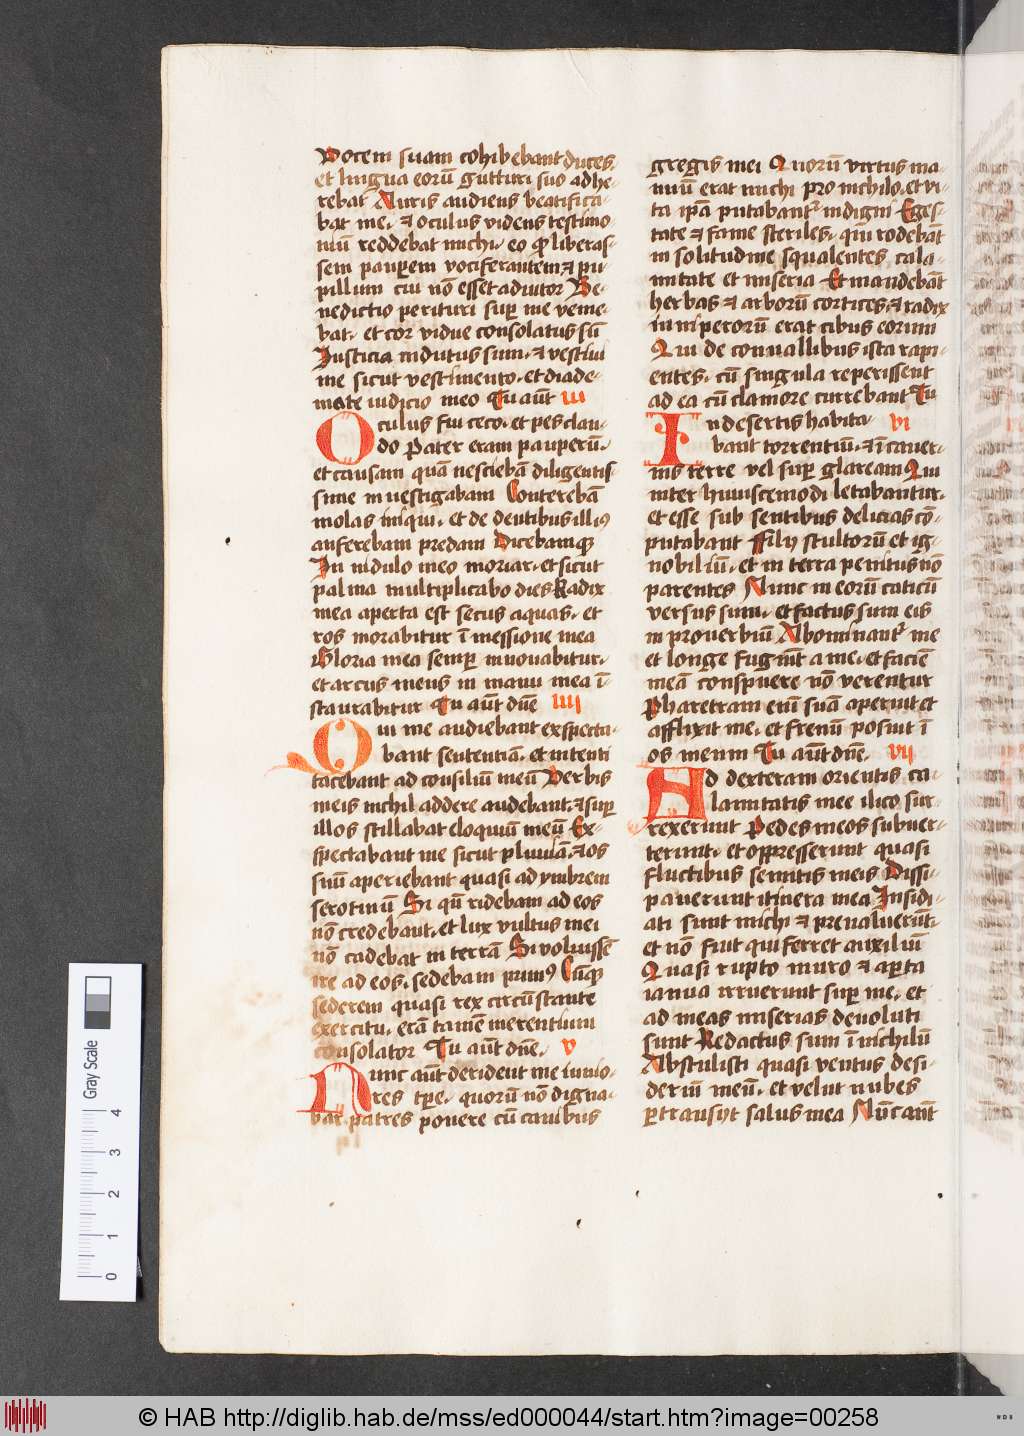 Vocem suam cohibebant duces
et lingua eorū gutturi suo adhe-
rebat Auris audiens beatifica-
bat me, ⁊ oculus videns testimo
niū reddebat michi, eo qͫ liberas-
sem pauꝑem vociferantem ⁊ pu-
pillum cui nō esset adiutor Be-
nedictio perituri suꝑ me venie-
bat, et cor vidue consolatus sū
Justicia indutus sum, ⁊ vestiui
me sicut vestimento, et diade-
mate iudicio meo Tu aūt iii
Oculus fui ceco, et pes clau-
do Pater eram pauperū,
et causam quā nesciebā diligentis
sime inuestigabam Conterebā
molas iniqui, et de dentibus illiꝰ
auferebam predam Dicebamqꝫ
In nidulo meo moriar, et sicut
palma multiplicabo dies Radix
mea aperta est secus aquas, et
ros morabitur ī messione mea
Gloria mea semꝑ innouabitur,
et arcus meus in manu mea ī-
staurabitur Tu aūt dn̄e iiii
Qui me audiebant exspecta-
bant sententiā, et intenti
tacebant ad consiliū meū Verbis
meis nichil addere audebant, ⁊ suꝑ
illos stillabat eloquiū meū Ex-
spectabant me sicut pluuiā, ⁊ os
suū aperiebant quasi ad ymbrem
serotinū Si qn̄ ridebam ad eos
nō credebant, et lux vultus mei
nō cadebat in terrā Si voluissē
ire ad eos, sedebam primꝰ Cūqꝫ
sederem quasi rex circūstante
exercitu, erā tamē merentium
consolator Tu aūt dn̄e, v
Nunc aūt derident me iunio-
res tꝑe, quorū nō digna-
bar patres ponere cū canibus
gregis mei Quorū virtus ma
nuū erat michi pro nichilo, et vi-
ta ip̄a putabantᷣ indigni Eges-
tate ⁊ fame steriles, qui rodebāt
in solitudine squalentes cala-
mitate et miseria Et mandebāt
herbas ⁊ arborū cortices, ⁊ radix
iuniperorū erat cibus eorum
Qui de conuallibus ista rapi-
entes, cū singula reperissent
ad ea cū clamore currebant Tu
In desertis habita- vi
bant torrentiū, ⁊ ī cauer-
nis terre vel suꝑ glaream Qui
inter huiuscemodi letabantur,
et esse sub sentibus delicias cō-
putabant Filij stultorū et ig-
nobiliū, et in terra penitus nō
parentes Nunc in eorū canticū
versus sum, et factus sum eis
in prouerbiū Abominantᷣ me
et longe fugiūt a me, et faciē
meā conspuere nō verentur
Pharetram eni suā aperuit et
afflixit me, et frenū posuit ī
os meum Tu aūt dn̄e, vii
Ad dexteram orientis ca-
lamitatis mee ilico sur-
rexerunt Pedes meos subuer-
terunt, et oppresserunt quasi
fluctibus semitis meis Dissi-
pauerunt itinera mea Insidi-
ati sunt michi ⁊ preualuerūt,
et nō fuit qui ferret auxiliū
Quasi rupto muro ⁊ aꝑta
ianua irruerunt suꝑ me, et
ad meas miserias deuoluti
sunt Redactus sum ī nichilū
Abstulisti quasi ventus desi-
deriū meū, et velut nubes
ꝑtransijt salus mea Nūc aūt
Gray Scale
0 1 2 3 4
© HAB http://diglib.hab.de/mss/ed000044/start.htm?image=00258